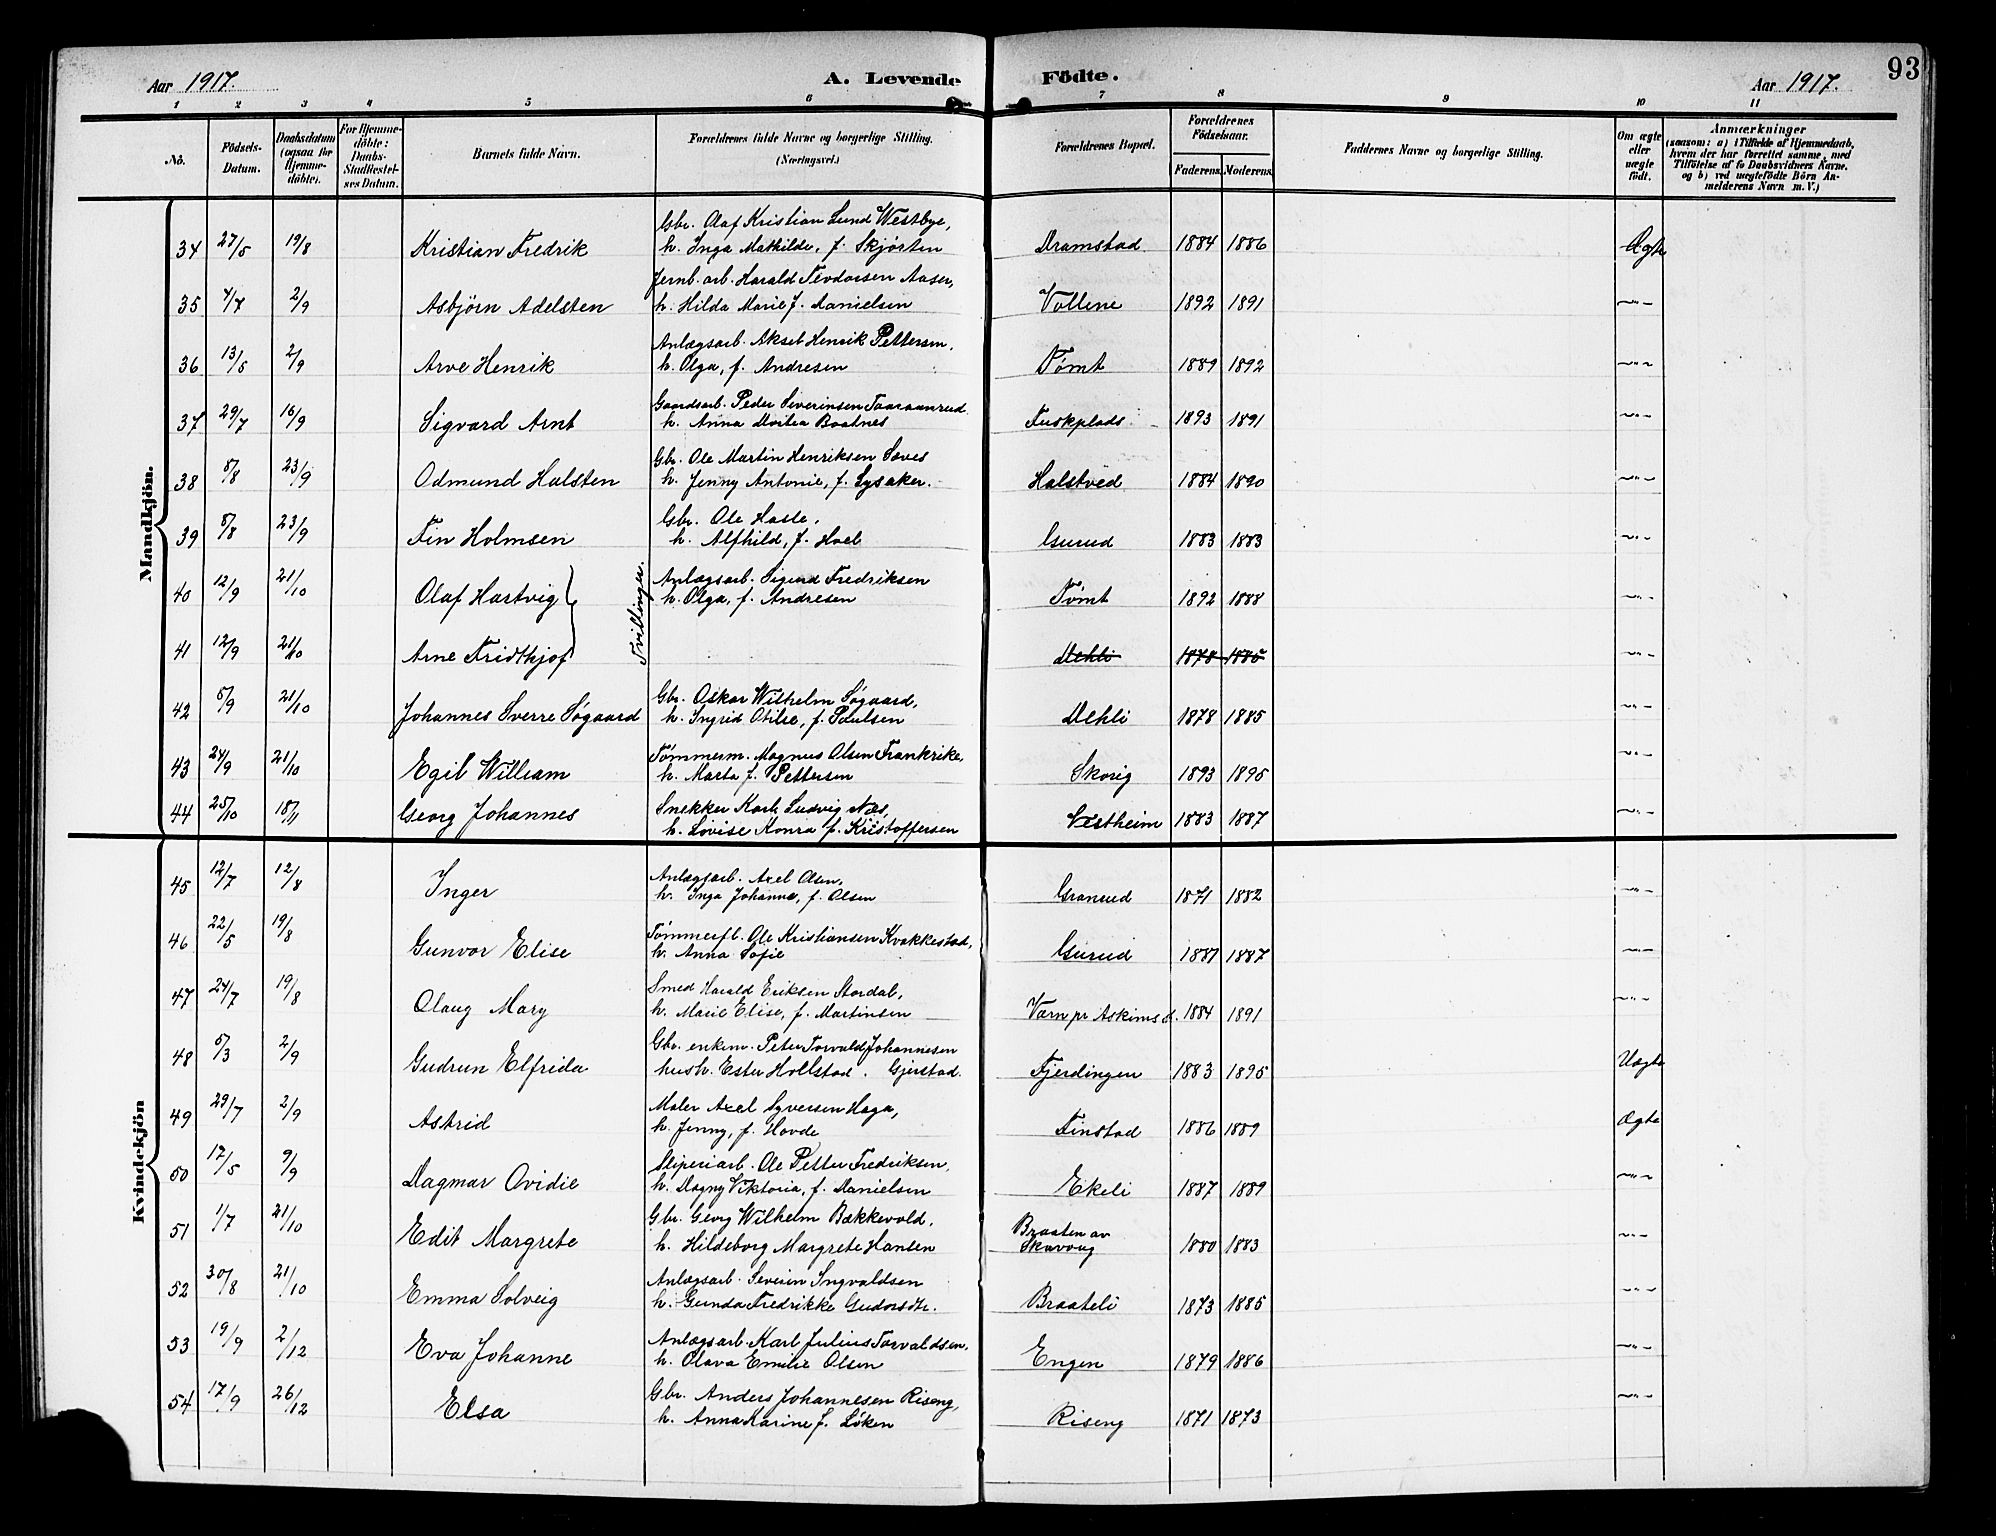 93
Aar 1917. A. Levende Födte. Aar 1917.
1 2 3 4 5 6 7 8 9 10 11
No. Födsels-Datum. Daabsdatum (ogsaa for Hjemmedöbte). For Hjemmedöbte: Daabs-Stadfæstelses Datum. Barnets fulde Navn. Forældrenes fulde Navne og borgerlige Stilling. (Næringsvei.) Forældrenes Bopæl. Forældrenes Födselsaar. Faderens. Moderens. Faddernes Navne og borgerlige Stilling. Om ægte eller uægte födt. Anmærkninger (saasom: a) i Tilfælde af Hjemmedaab, hvem der har forrettet samme, med Tilföielse af to Daabsvidners Navne, og b) ved uægtefödte Börn Anmelderens Navn m. V.)
Mandkjön.
34 27/5 19/8 Kristian Fredrik Gbr. Olaf Kristian Lund Westbye, h. Inga Mathilde, f. Skjørten Dramstad 1884 1886 Ægte
35 4/7 2/9 Asbjörn Adelsten Jernb.arb. Harald Teodorsen Aaser, h. Hilda Marie f. Danielsen Vollene 1892 1891 -"-
36 13/5 2/9 Arve Henrik Anlægsarb. Aksel Henrik Pettersen, h. Olga, f. Andresen Tømt 1889 1892 -"-
37 29/7 16/9 Sigvard Arnt Gaardsarb. Peder Severinsen h. Anna Baatnes Fuskplads 1893 1891 -"-
38 5/8 23/9 Odmund Halsten Gbr. Ole Martin Henriksen h. Jenny Antonie, f. Lysaker. Halstved 1884 1890 -"-
39 5/8 23/9 Fin Holmsen Gbr. Ole Hasle, h. Alfhild, f. Hoel Gurud 1883 1883 -"-
40 12/9 21/10 Olaf Hartvig Tvillinger. Anlægsarb. Sigurd Fredriksen h. Olga, f. Andresen Tømt 1892 1888 -"-
41 12/9 21/10 Arne Fridtkjof Dehli 1878 1885 -"-
42 5/9 21/10 Johannes Sverre Søgaard Gbr. Oskar Wilhelm Søgaard, h. Ingrid Otilie, f. Paulsen Dehli 1878 1885 -"-
43 24/9 21/10 Egil William Tømmerm. Magnus Olsen Frankrike, h. Marta f. Pettersen Skorig 1893 1895 -"-
44 25/10 18/11 Georg Johannes Snekker Karl Ludvig Næs, h. Lovise Monra f. Kristoffersen Vestheim 1883 1887 -"-
Kvindekjön
45 12/7 12/8 Inger Anlægsarb. Axel Olsen, h. Inga Johanne, f. Olsen Granrud 1871 1882 -"-
46 22/5 19/8 Gunvor Elise Tömmerfl. Ole Kristiansen Kvakkestad, h. Anna Sofie Gurud 1887 1887 -"-
47 24/7 19/8 Olaug Mary Smed Harald Eriksen Stordal, h. Marie Elise, f. Martinsen Varn pr Askim s. 1884 1891 -"-
48 5/3 2/9 Gudrun Elfrida Gbr. enkem. Peter Torvald Johannesen hush. Ester Hollstad. Gjerstad. Fjerdingen 1883 1895 Uægte
49 29/7 2/9 Astrid Maler Axel Syversen Haga, h. Jenny, f. Hovde Finstad 1886 1889 Ægte
50 17/5 9/9 Dagmar Ovidie Sliperiarb. Ole Petter Fredriksen, h. Dagny Viktoria, f. Danielsen Ekeli 1887 1889 -"-
51 1/7 21/10 Edit Margrete Gbr. Georg Wilhelm Bækkevold, h. Hildeborg Margrete Hansen Braaten av Skavoug 1880 1883 -"-
52 30/8 21/10 Emma Solveig Anlægsarb. Severin Ingvaldsen h. Gunda Fredrikke Gudorsdtr. Braateli 1873 1885 -"-
53 19/9 2/12 Eva Johanne Anlægsarb. Karl Julius Torvaldsen, h. Olava Emilie Olsen Engen 1879 1886 -"-
54 17/9 26/12 Elsa Gbr. Anders Johannesen Riseng, h. Anna Karine f. Løken Riseng 1871 1873 -"-